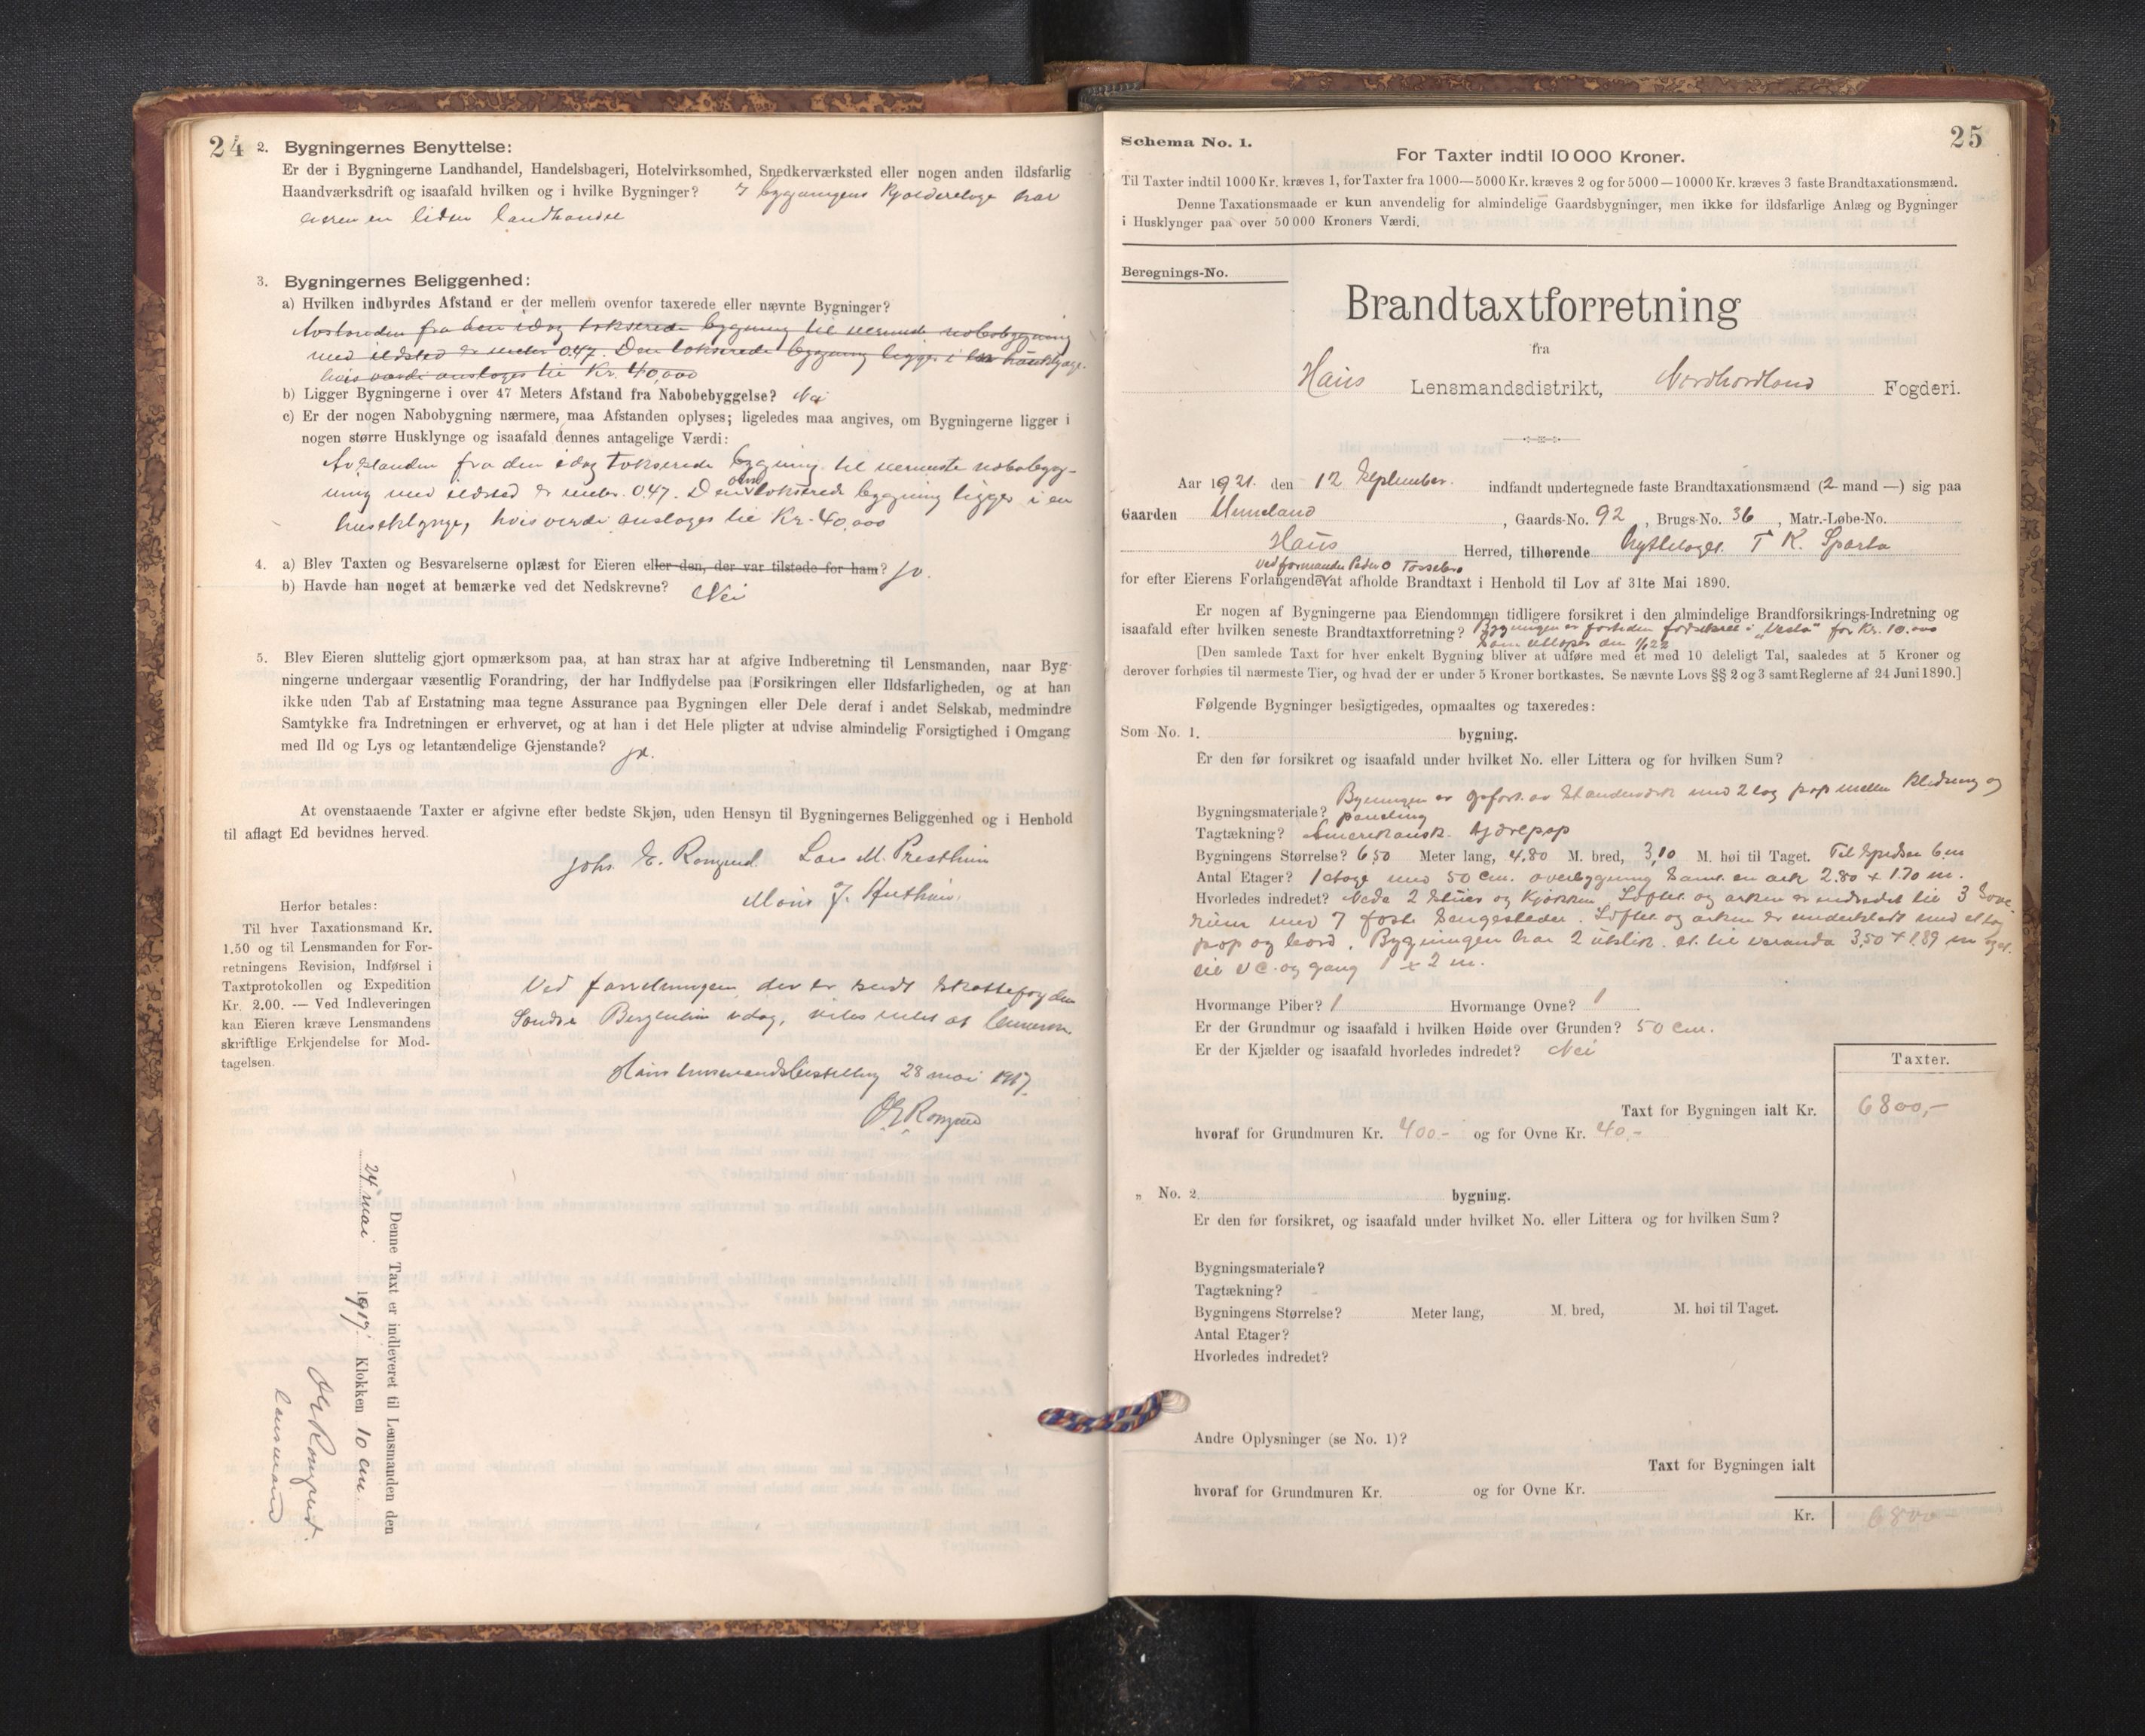 24
2. Bygningernes Benyttelse:
Er der i Bygningerne Landhandel, Handelsbageri, Hotelvirksomhed, Snedkerværksted eller nogen anden ildsfarlig
Haandværksdrift og isaafald hvilken og i hvilke Bygninger? I bygningens kjælderetage har
eieren en liden landhandel
3. Bygningernes Beliggenhed:
a) Hvilken indbyrdes Afstand er der mellem ovenfor taxerede eller nævnte Bygninger?
Avstanden fra den idag takserede bygning til nermeste nabobygning
med ildsted er under 0.47. Den takserede bygning ligger i en husklynge
hvis værdi ansloges til Kr. 40,000
b) Ligger Bygningerne i over 47 Meters Afstand fra Nabobebyggelse? Nei
c) Er der nogen Nabobygning nærmere, maa Afstanden oplyses; ligeledes maa angives, om Bygningerne ligger i
nogen større Husklynge og isaafald dennes antagelige Værdi:
Avstanden fra den idag takserede bygning til nermeste nabobyg-
ning med ildsted er under 0.47. Den takserede bygning ligger i en
husklynge, hvis værdi ansloges til Kr. 40,000
4. a) Blev Taxten og Besvarelserne oplæst for Eieren eller den, der var tilstede for ham? Ja.
b) Havde han noget at bemærke ved det Nedskrevne? Nei
5. Blev Eieren sluttelig gjort opmærksom paa, at han strax har at afgive Indberetning til Lensmanden, naar Byg-
ningerne undergaar væsentlig Forandring, der har Indflydelse paa Forsikringen eller Ildsfarligheden, og at han
ikke uden Tab af Erstatning maa tegne Assurance paa Bygningen eller Dele deraf i andet Selskab, medmindre
Samtykke fra Indretningen er erhvervet, og at han i det Hele pligter at udvise almindelig Forsigtighed i Omgang
med Ild og Lys og letantændelige Gjenstande? Ja.
At ovenstaaende Taxter er afgivne efter bedste Skjøn, uden Hensyn til Bygningernes Beliggenhed og i Henhold
til aflagt Ed bevidnes herved.
Johs. E. Romgued. Lars M. Presthun
Mons J.
Herfor betales:
Til hver Taxationsmand Kr.
1.50 og til Lensmanden for For-
retningens Revision, Indførsel i
Taxtprotokollen og Expedition
Kr. 2.00. — Ved Indleveringen
kan Eieren kræve Lensmandens
skriftlige Erkjendelse for Mod-
tagelsen.
Ved forretningen, der er sendt skattefogden
Søndre Bergenhus idag, vites intet at bemerke.
Haus lensmandsbestilling 28 mai 1917.
Denne Taxt er indleveret til Lensmanden den
24 mai 1917. Klokken 10 em.
lensmand
25
Schema No. 1.
For Taxter indtil 10 000 Kroner.
Til Taxter indtil 1000 Kr. kræves 1, for Taxter fra 1000—5000 Kr. kræves 2 og for 5000—10000 Kr. kræves 3 faste Brandtaxationsmænd.
Denne Taxationsmaade er kun anvendelig for almindelige Gaardsbygninger, men ikke for ildsfarlige Anlæg og Bygninger
i Husklynger paa over 50 000 Kroners Værdi.
Beregnings-No.
Brandtaxtforretning
fra
Haus Lensmandsdistrikt, Nordhordland Fogderi.
Aar 1921. den 12 September. indfandt undertegnede faste Brandtaxationsmænd (2 mand —) sig paa
Gaarden Unneland, Gaards-No. 92, Brugs-No. 36, Matr.-Løbe-No.
Haus Herred, tilhørende Hyttelaget T K. Sparta
ved formanden Peder O
for efter Eierens Forlangende at afholde Brandtaxt i Henhold til Lov af 31te Mai 1890.
Er nogen af Bygningerne paa Eiendommen tidligere forsikret i den almindelige Brandforsikrings-Indretning og
isaafald efter hvilken seneste Brandtaxtforretning? Bygningen er fortiden forsikret i „Vesta" for Kr. 10.000
som utløper den 1/1 22
[Den samlede Taxt for hver enkelt Bygning bliver at udføre med et med 10 deleligt Tal, saaledes at 5 Kroner og
derover forhøies til nærmeste Tier, og hvad der er under 5 Kroner bortkastes. Se nævnte Lovs §§ 2 og 3 samt Reglerne af 24 Juni 1890.]
Følgende Bygninger besigtigedes, opmaaltes og taxeredes:
Som No. 1. bygning.
Er den før forsikret og isaafald under hvilket No. eller Littera og for hvilken Sum?
Bygningen er opført av standerverk med 2 lag pap mellem kledning og
Bygningsmateriale? paneling
Tagtækning? Amerikansk tjærepap
Bygningens Størrelse? 6.50 Meter lang, 4.80 M. bred, 3,10 M. høi til Taget. Til Spidsen 6 m
Antal Etager? 1 etage med 50 cm. overbygning samt en ark 2.80 x 1.70 m.
Hvorledes indredet? Nede 2 stuer og kjøkken. Loftet og arken er indredet til 3 sove-
rum med 7 faste sengesteder. Loftet og arken er underklædt med et lag
pap og bord. Bygningen har 2 utskik. et til veranda 3,50 x 1,89 m og et
til v c. og gang 1 x 2 m.
Hvormange Piber? 1 Hvormange Ovne? 1
Er der Grundmur og isaafald i hvilken Høide over Grunden? 50 cm.
Er der Kjælder og isaafald hvorledes indredet? Nei
Taxter.
Taxt for Bygningen ialt Kr. 6800,-
hvoraf for Grundmuren Kr. 400.- og for Ovne Kr. 40.-
„ No. 2 bygning.
Er den før forsikret, og isaafald under hvilket No. eller Littera og for hvilken Sum?
Bygningsmateriale?
Tagtækning?
Bygningens Størrelse? Meter lang, M. bred, M. høi til Taget.
Antal Etager?
Hvorledes indredet?
Andre Oplysninger (se No. 1)?
Taxt for Bygningen ialt
hvoraf for Grundmuren Kr. og for Ovne Kr.
Kr. 6800-